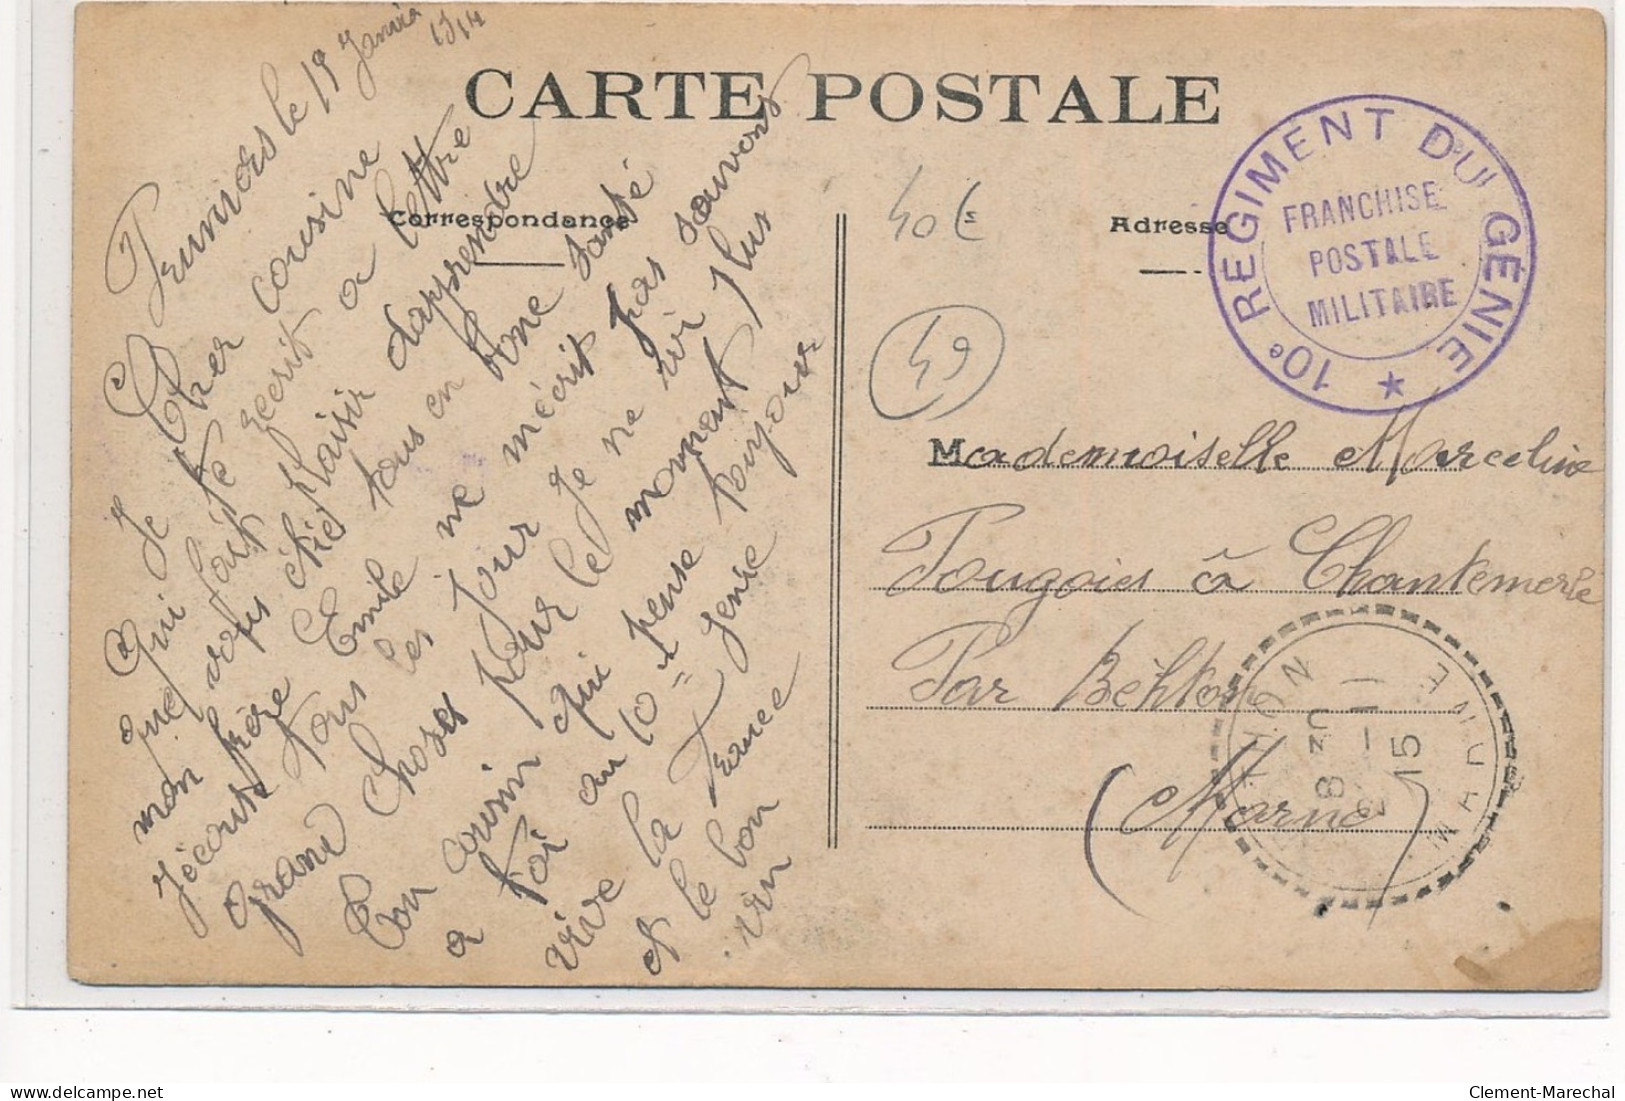 CARTE POSTALE
Correspondance
Adresse
10e REGIMENT DU GÉNIE
FRANCHISE
POSTALE
MILITAIRE
40 €
49
le 19 Janvier
1914
Cher cousine
Je te
Qui fait reerit a lettre
que vous étié plaisir d'apprendre
mon frère tous en bone santé
Jécoust Emile ne mécrit pas souvons
tous les jour Je ne vit plus
grand choses pour le moment
Ton cousin qui pense toujour
a toi au 10e Jenie
vive la France
et le bon
vin
Mademoiselle Marceline
Pougois à Chantemerle
Par Béthon
(Marne)
BETHON
MARNE
8 30
-1
15
Clement-Marechal